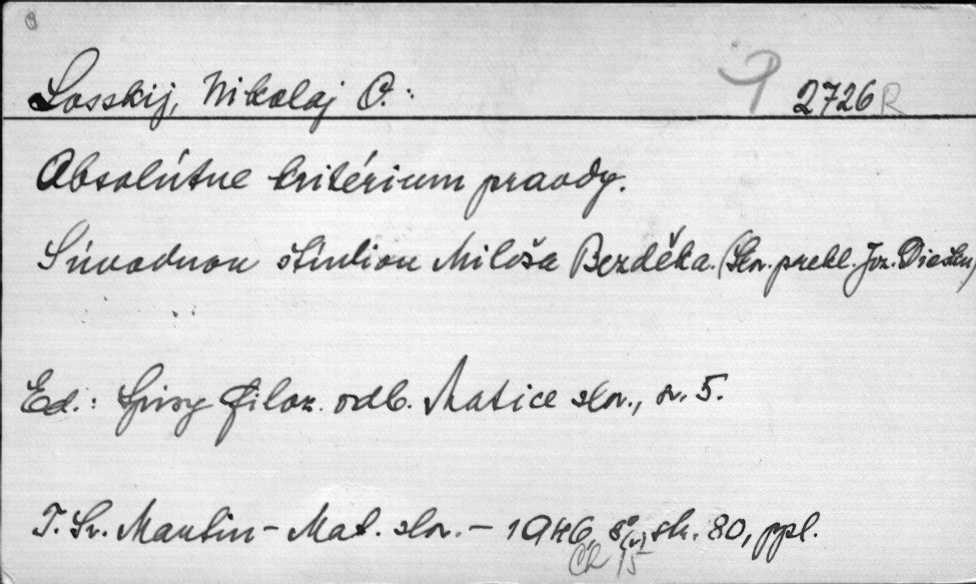 Losskij, Nikolaj O.: 2726 R
Absolútne kritérium pravdy.
S úvodnou štúdiou Miloša Bezděka. (Slov. prekl. Joz. Dieška)
Ed.: Spisy filoz. odb. Matice slov., sv. 5.
T. Sv. Martin - Mat. slov. - 1946, 8° (v) str. 80, ppl.